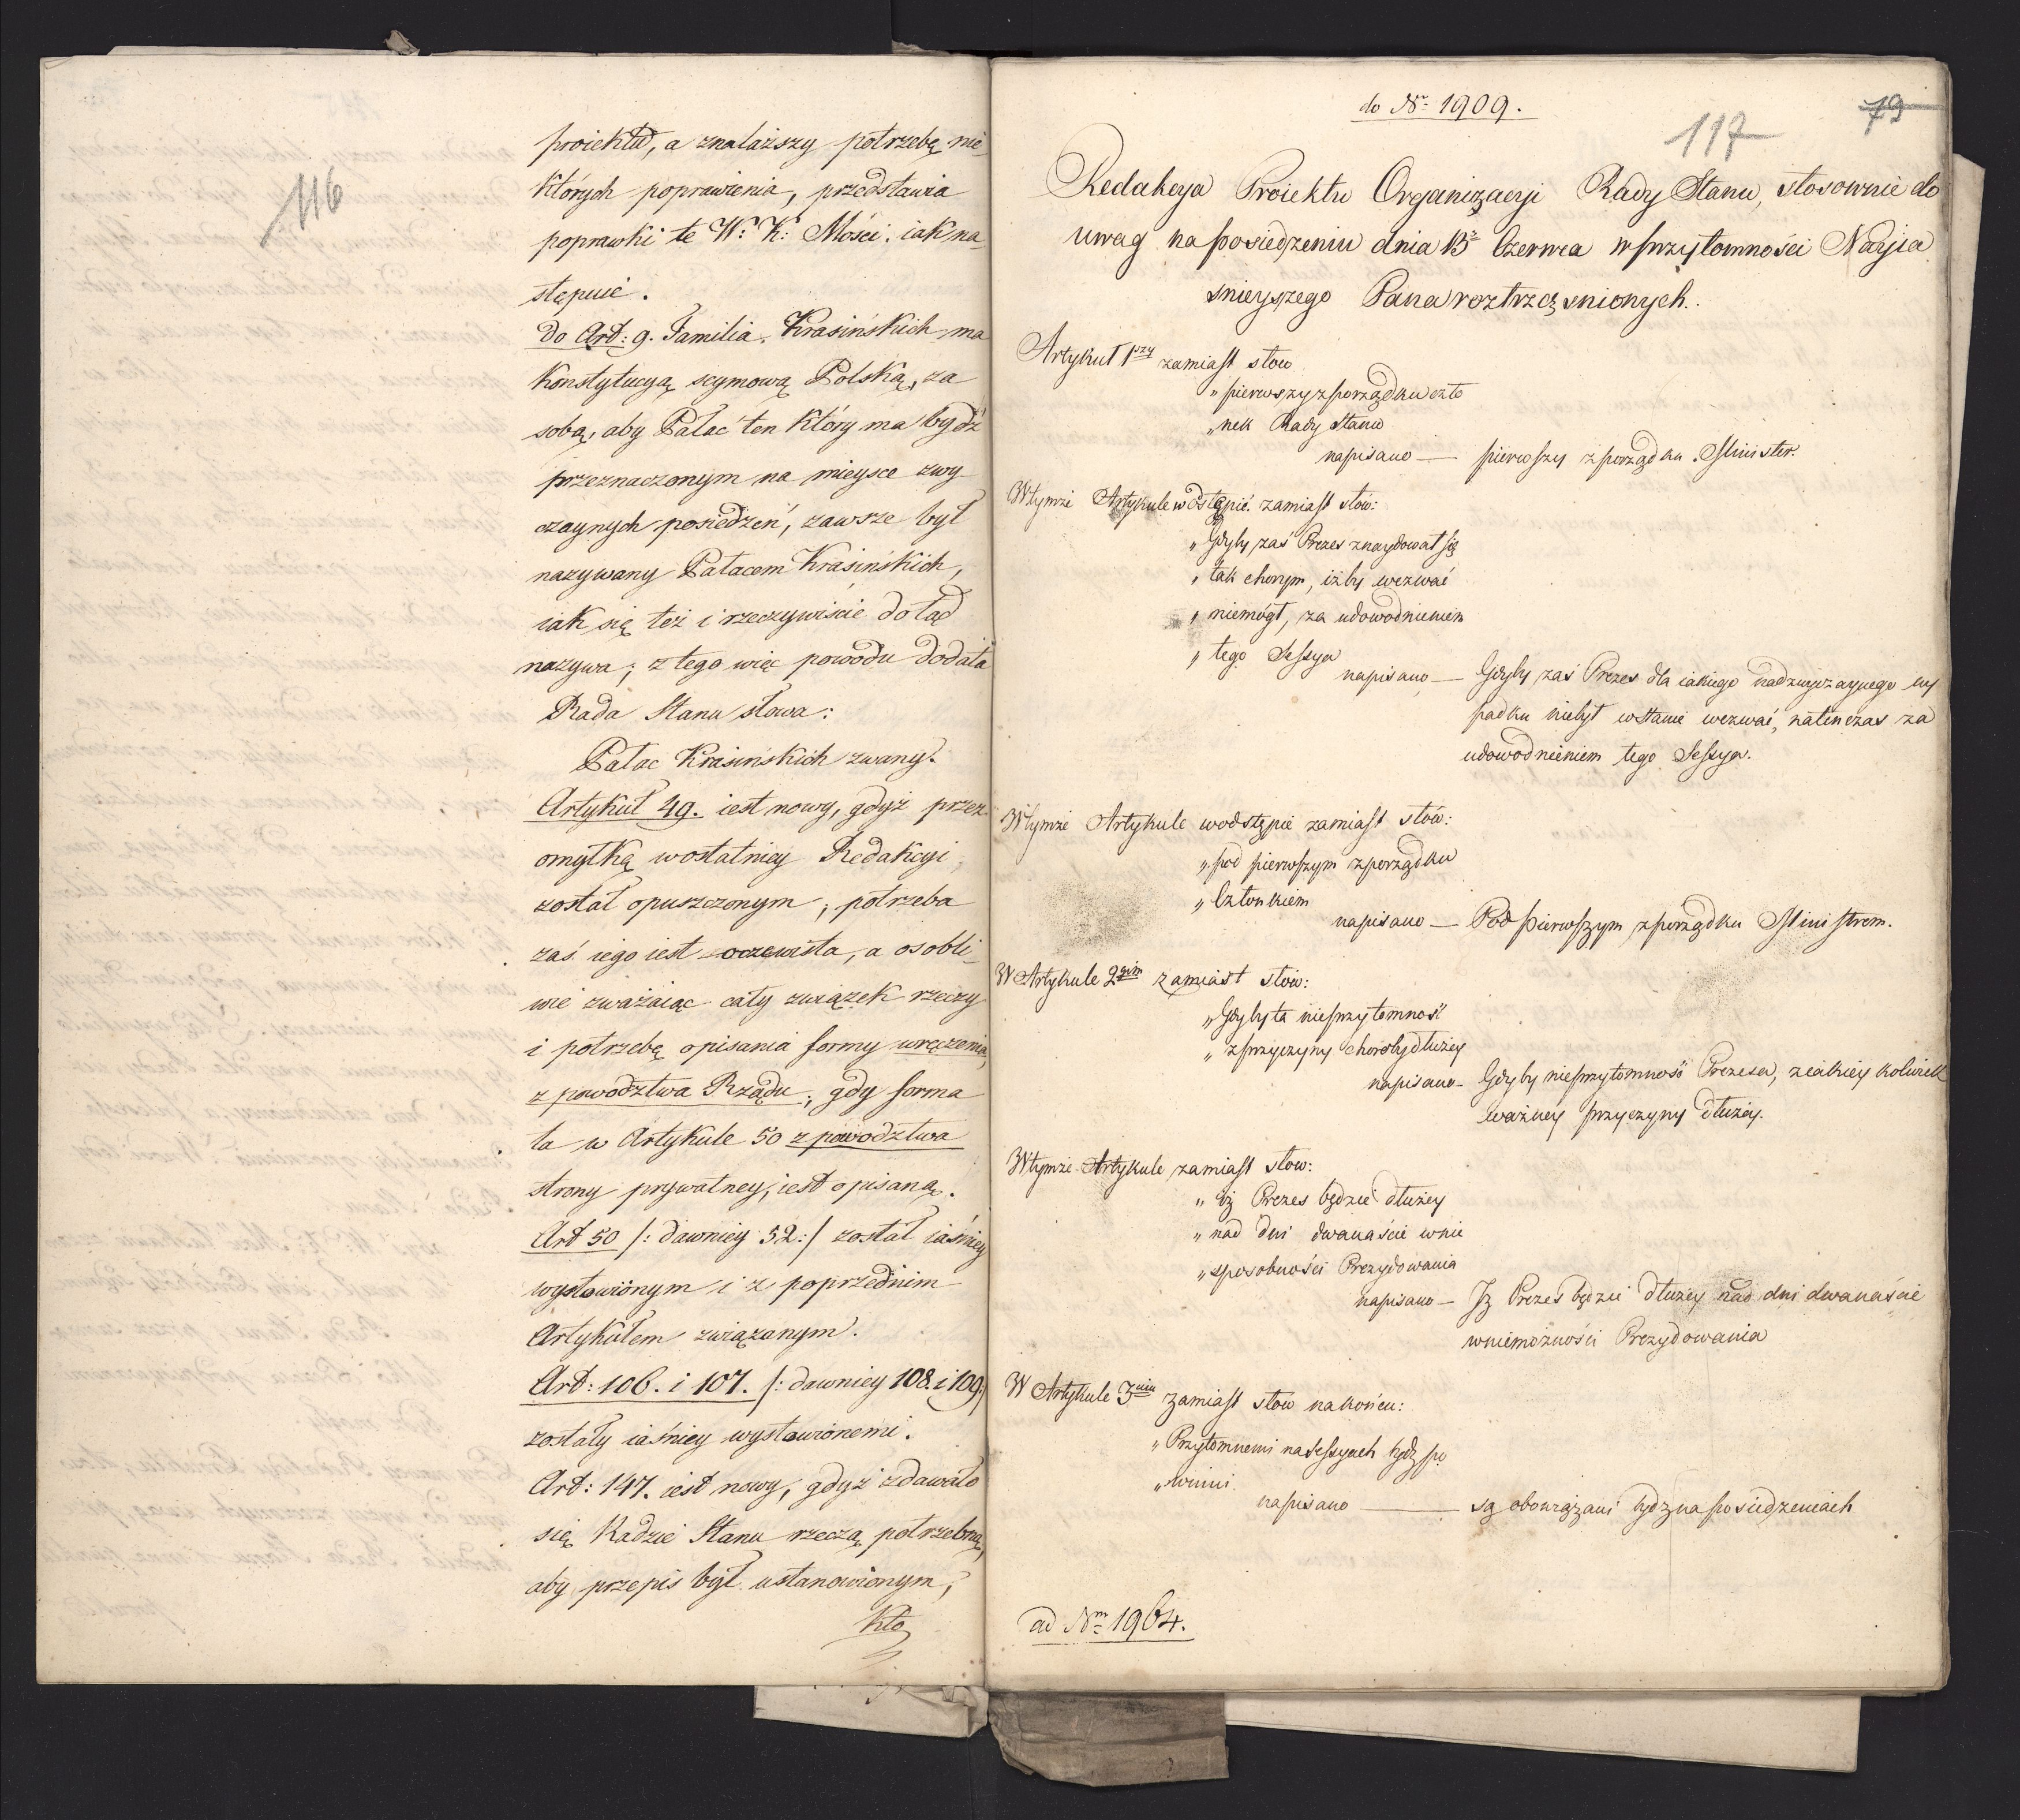 116
proiektu, a znalazszy potrzebę nie
których poprawienia, przedstawia
poprawki te W: K: Mości. iak na
stępuie.
do Art: 9. Familia Krasińskich ma
Konstytucyą seymową Polską, za
sobą, aby Pałac ten który ma bydź
przeznaczonym na mieysce zwy
czaynych posiedzeń, zawsze był
nazywany Pałacem Krasińskich,
iak się też i rzeczywiście dotąd
nazywa; z tego więc powodu dodała
Rada Stanu słowa:
Pałac Krasińskich zwany.
Artykuł 49. iest nowy, gdyż przez
omyłką w ostatniey Redakcyi
został opuszczonym; potrzeba
zaś iego iest oczewista, a osobli
wie zważaiąc cały związek rzeczy
i potrzebę opisania formy wręczenia,
z powodztwa Rządu; gdy forma
ta w Artykule 50 z powodztwa
strony prywatney, iest opisaną.
Art 50 /: dawniey 52:/ został iaśniey
wysłowionym i z poprzednim
Artykułem związanym.
Art: 106. i 107. /: dawniey 108. i 109:/
zostały iaśniey wysłowionemi.
Art: 147. iest nowy, gdyż zdawało
się Radzie Stanu rzeczą potrzebną,
aby przepis był ustanowionym,
Kto
do Nr 1909.
117 79
Redakcya Proiektu Organizacyi Rady Stanu, stosownie do
uwag na posiedzeniu dnia 13 Czerwca w przytomności Nayia
śnieyszego Pana roztrząśnionych.
Artykuł 1szy zamiast słow
„ pierwszy z porządku czło
„ nek Rady Stanu
napisano — pierwszy z porządku Minister.
W tymże Artykule w odstępie zamiast słow:
„ Gdyby zaś Prezes znaydował się
„ tak chorym, iżby wezwać
„ niemógł, za udowodnieniem
„ tego Sessya
napisano — Gdyby zaś Prezes dla iakiego nadzwyczaynego wy
padku niebył w stanie wezwać, natenczas za
udowodnieniem tego Sessya.
W tymże Artykule w odstępie zamiast słów:
„ pod pierwszym z porządku
„ Członkiem
napisano — Pod pierwszym z porządku Ministrem.
W Artykule 2gim zamiast słów:
„ Gdyby ta nieprzytomność
„ z przyczyny choroby dłużey
napisano — Gdyby nieprzytomność Prezesa, z iakiey kolwiek
ważney przyczyny dłużey.
W tymże Artykule zamiast słow:
„ Iż Prezes będzie dłużey
„ nad dni dwanaście w nie
„ sposobności Prezydowania
napisano — Iż Prezes będzie dłużey nad dni dwanaście
w niemożności Prezydowania
W Artykule 3cim zamiast słow na końcu:
„ Przytomnemi na Sessyach bydź po
„ winni
napisano — są obowiązani bydź na posiedzeniach
ad Nm 1964.